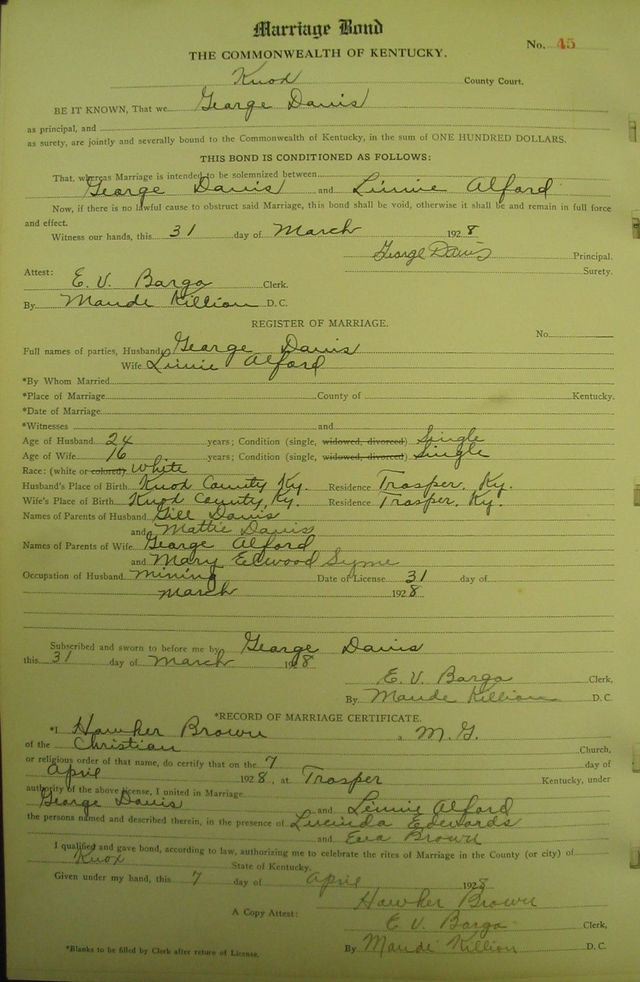 Marriage Bond
No. 45
THE COMMONWEALTH OF KENTUCKY.
Knox County Court.
BE IT KNOWN, That we George Davis
as principal, and
as surety, are jointly and severally bound to the Commonwealth of Kentucky, in the sum of ONE HUNDRED DOLLARS.
THIS BOND IS CONDITIONED AS FOLLOWS:
That, whereas Marriage is intended to be solemnized between
George Davis and Linnie Alford
Now, if there is no lawful cause to obstruct said Marriage, this bond shall be void, otherwise it shall be and remain in full force
and effect.
Witness our hands, this 31 day of March 1928
George Davis Principal.
Surety.
Attest: E. V. Bargo Clerk.
By Maude Killion D. C.
REGISTER OF MARRIAGE.
No.
Full names of parties, Husband George Davis
Wife Linnie Alford
*By Whom Married
*Place of Marriage County of Kentucky.
*Date of Marriage
*Witnesses and
Age of Husband 24 years; Condition (single, widowed, divorced) Single
Age of Wife 16 years; Condition (single, widowed, divorced) Single
Race: (white or colored) White
Husband's Place of Birth Knox County Ky. Residence Trosper, Ky.
Wife's Place of Birth Knox County, Ky. Residence Trosper, Ky.
Names of Parents of Husband Gill Davis
and Mattie Davis
Names of Parents of Wife George Alford
and Mary Syme
Occupation of Husband mining Date of License 31 day of
March 1928
Subscribed and sworn to before me by George Davis
this 31 day of March 1928
E. V. Bargo Clerk,
By Maude Killion D. C.
*RECORD OF MARRIAGE CERTIFICATE.
*I Hawker Brown a M. G.
of the Christian Church,
or religious order of that name, do certify that on the 7 day of
April 1928, at Trosper Kentucky, under
authority of the above license, I united in Marriage
George Davis and Linnie Alford
the persons named and described therein, in the presence of Lucinda Edwards
and Eva Brown
I qualified and gave bond, according to law, authorizing me to celebrate the rites of Marriage in the County (or city) of
Knox State of Kentucky.
Given under my hand, this 7 day of April 1928
Hawker Brown
A Copy Attest: E. V. Bargo Clerk,
*Blanks to be filled by Clerk after return of License. By Maude Killion D. C.